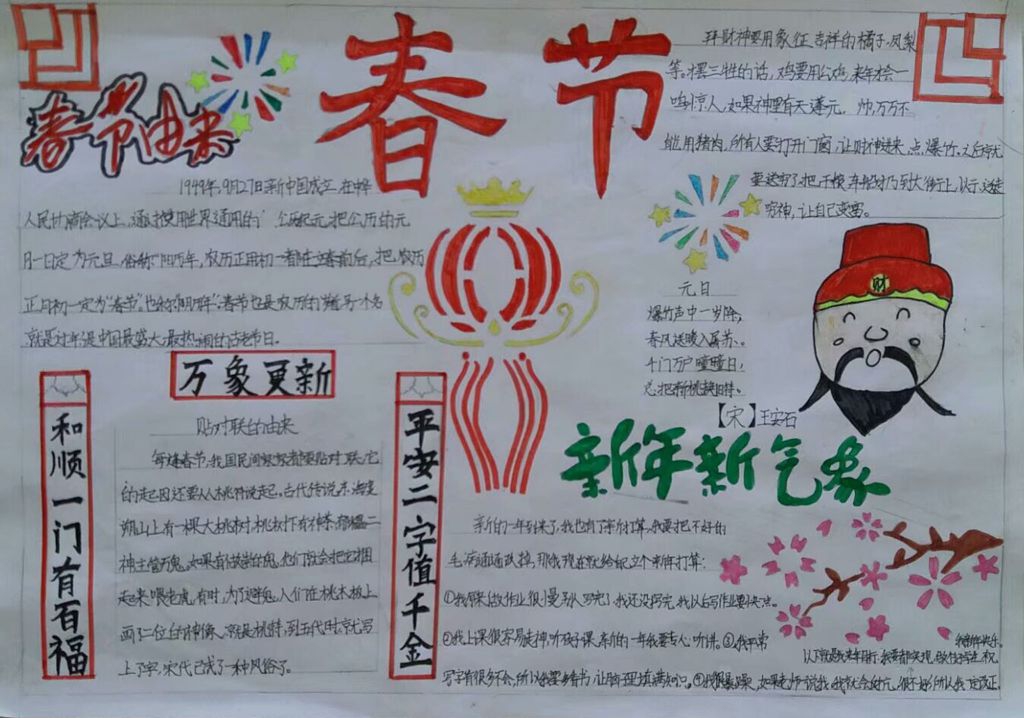 春节
春节由来
1949年,9月27日新中国成立,在中华
人民协商会议上,通过使用世界通用的"公历纪元,把公历的元
月一日定为元旦,俗称"阳历年,农历正月初一都在立春前后,把农历
正月初一定为"春节"也称"阴历年",春节也是农历的
就是过年,是中国最盛大,最热闹的古老节日。
拜财神要用象征吉祥的橘子,凤梨
等。摆三牲的话,鸡要用公鸡,来年才会一
鸣惊人,如果神里有天蓬元帅,万万不
能用猪肉,所有人要打开门窗,让财神进来,点爆竹,
穷神,让自己变富。
元日
爆竹声中一岁除,
春风送暖入屠苏。
千门万户曈曈日,
总把新桃换旧符。
【宋】王安石
财
万象更新
和顺一门有百福
贴对联的由来
每逢春节,我国民间家家都要贴对联,它
的起因还要从桃符说起。古代传说,东海度
朔山上有一棵大桃树,桃树下有神荼,郁櫑二
神主管万鬼。如果有做祟的鬼,他们就会把它捆
起来喂老虎,有时,为了避鬼,人们在桃木板上
画了二位的神像,就是桃符,到五代时,就写
上了字,宋代已成了一种风俗了。
平安二字值千金
新年新气象
新的一年到来了,我也有了新打算,我要把不好的
毛病通通改掉,那我现在就给自己立个新年打算:
①我做作业很慢,别人写完了,我还没写完,我以后写作业要快一点。
②我上课很容易走神,听不好课,新的一年我要专心听讲。③我平常
写字有很多不会,所以我要多看书,让脑里填满知识。